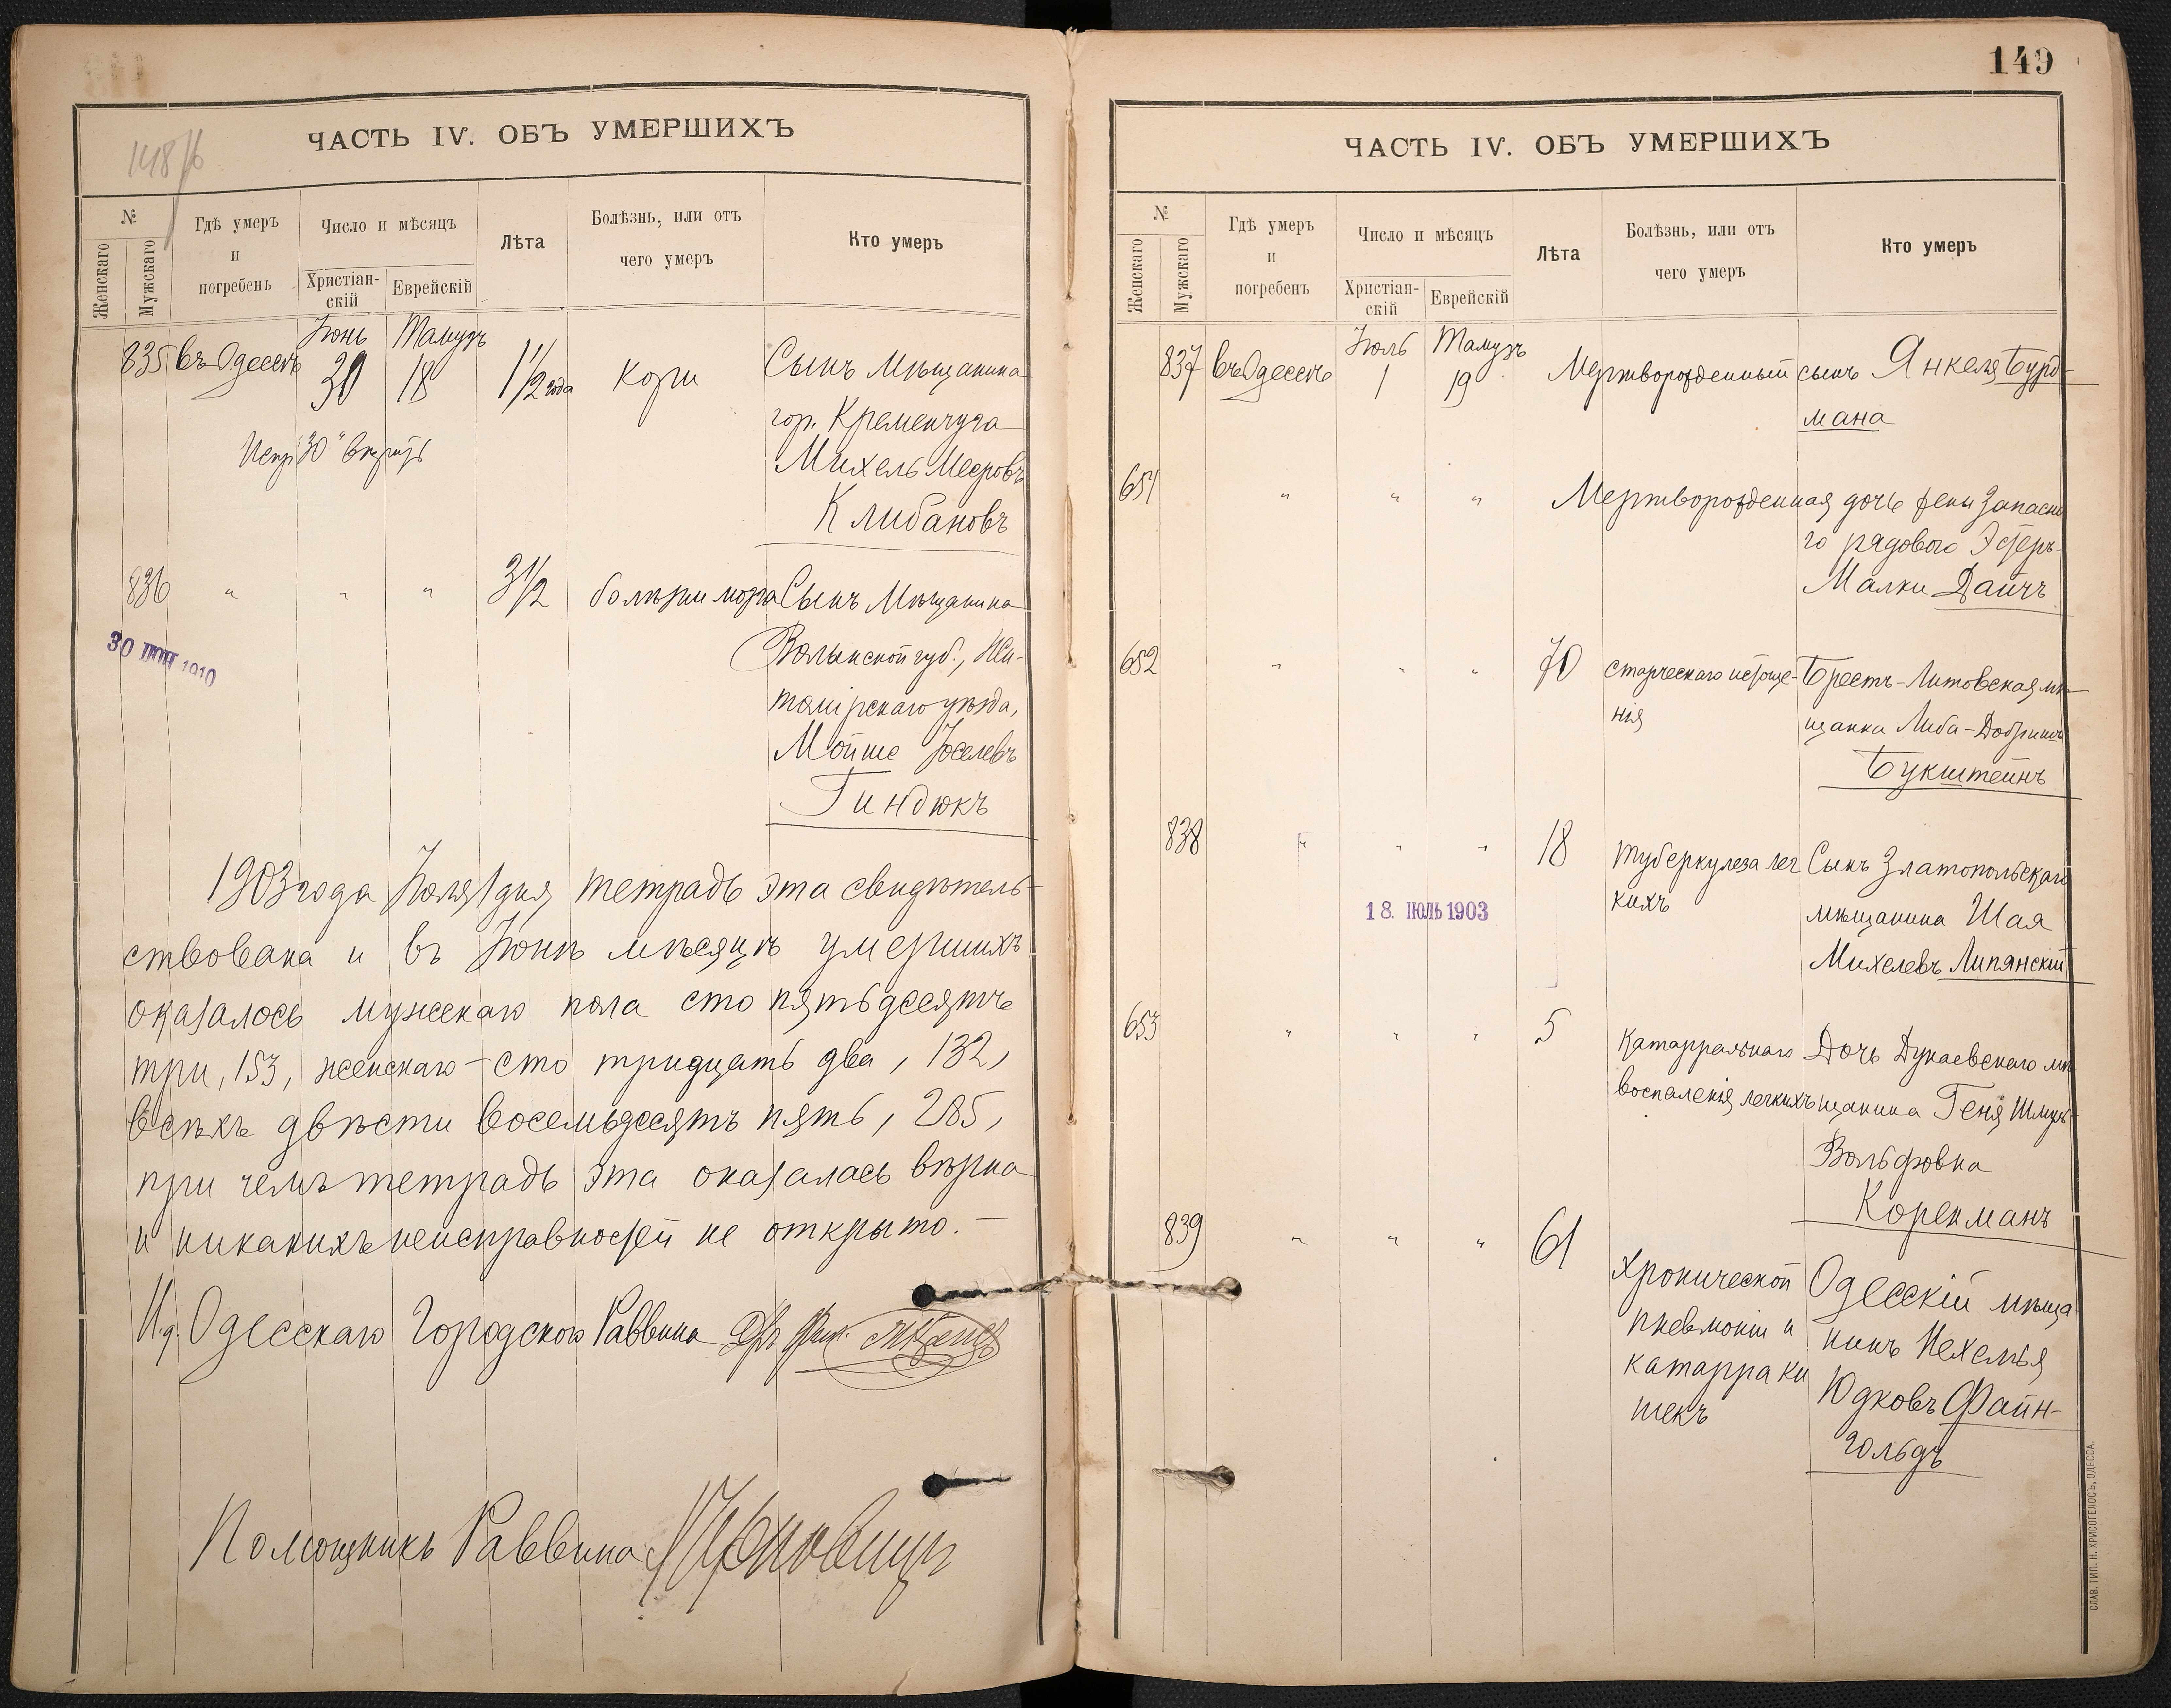 148/б
ЧАСТЬ IV. ОБЪ УМЕРШИХЪ
№
Женскаго
Мужскаго
Гдѣ умеръ
и
погребенъ
Число и мѣсяцъ
Христіан-
скій
Еврейскій
Лѣта
Болѣзнь, или отъ
чего умеръ
Кто умеръ
Іюнь Тамузъ
835 въ Одессѣ 30 18 1 1/2 года Кори Сынъ Мѣщанина
гор. Кременчуга
Михель Мееровъ
Клибановъ
Испр „30" вѣрить
836 " " " 3 1/2 болѣзни мозга Сынъ Мѣщанина
Волынской губ., Жи-
томірскаго уѣзда,
Мойше Іоселевъ
Гиндюкъ
30 ІЮН 1910
1903 года Іюля 1 дня тетрадь эта свидѣтель-
ствована и въ Іюнѣ мѣсяцѣ умершихъ
оказалось мужскаго пола сто пятьдесятъ
три, 153, женскаго - сто тридцать два, 132,
всѣхъ двѣсти восемьдесятъ пять, 285,
при чемъ тетрадь эта оказалась вѣрна
и никакихъ неисправностей не открыто. -
И.д. Одесскаго Городскаго Раввина
Помощникъ Раввина
149
ЧАСТЬ IV. ОБЪ УМЕРШИХЪ
№
Женскаго
Мужскаго
Гдѣ умеръ
и
погребенъ
Число и мѣсяцъ
Христіан-
скій
Еврейскій
Лѣта
Болѣзнь, или отъ
чего умеръ
Кто умеръ
Іюль Тамузъ
837 въ Одессѣ 1 19 Мертворожденный сынъ Янкеля Бурд-
мана
651 " " " Мертворожденная дочь жены запасно
го рядового Эстеръ-
Малки Дайчъ
652 " " " 70 старческаго истоще- Брестъ-Литовская мѣ
нія щанка Либа-Добришъ
Букштейнъ
838 " " " 18 туберкулеза лег Сынъ Златопольскаго
кихъ мѣщанина Шая
Михелевъ Липянскій
18. ІЮЛЬ 1903
653 " " " 5 Катарральнаго Дочь Дунаевскаго мѣ
воспаленія легкихъ щанина Геня
Вольфовна
Коренманъ
839 " " " 61 Хронической Одесскій мѣща-
пневмоніи и нинъ Ихемья
катарра ки Юдковъ Файн-
шекъ гольдъ
СЛАВ. ТИП. Н. ХРИСОГЕЛОСЪ, ОДЕССА.